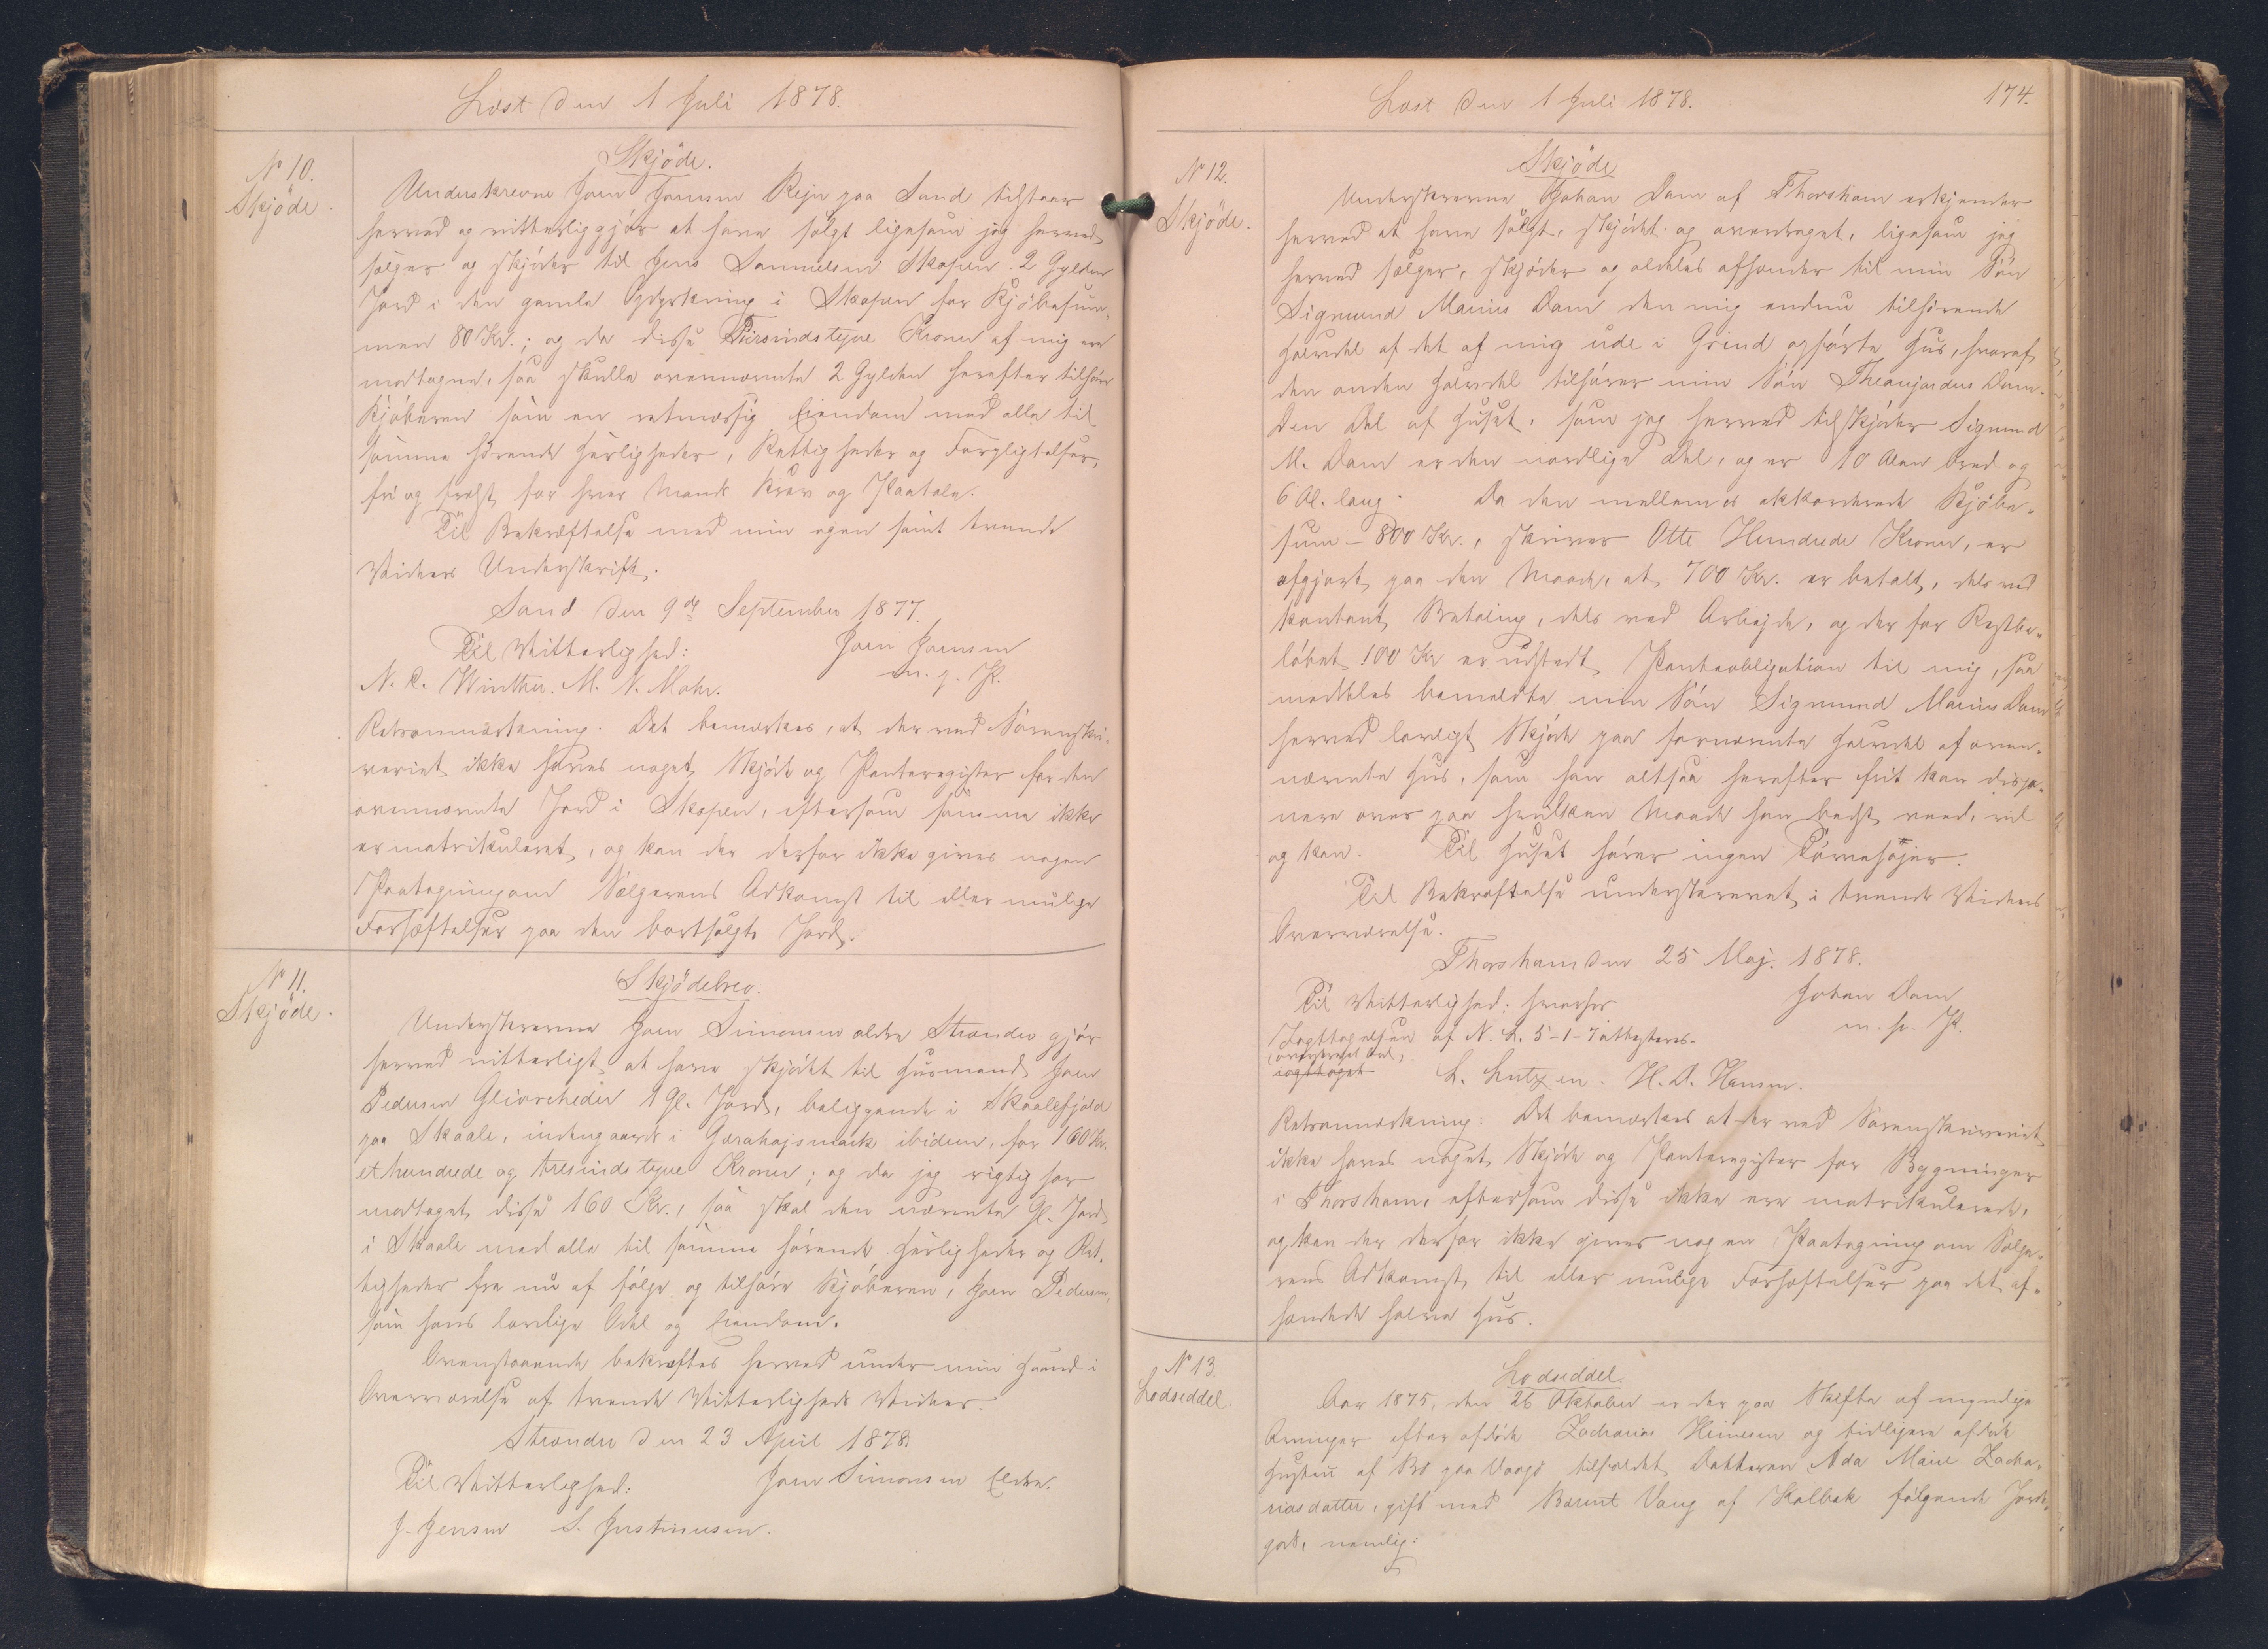 Læst den 1 Juli 1878.
No 10.
Skjöde.
Skjöde.
Underskrevne Joen Joensen Rejn paa Sand tilstaar
herved og vitterliggjör at have solgt ligesom jeg herved
sælger og skjöder til Jens Samuelsen Skopen 2 Gylden
Jord i den gamle Opdyrkning i Skopen for Kjöbesum-
men 80 Kr.; og da disse Firsindstyve Kroner af mig ere
modtagne, saa skulle ovennævnte 2 Gylden herefter tilhöre
Kjöberen som en retmæssig Eiendom med alle til
samme hörende Herligheder, Rettigheder og Forpligtelser,
fri og frelst for hver Mands Krav og Paatale.
Til Bekræftelse med min egen samt tvende
Vidners Underskrift.
Sand den 9de September 1877.
Til Vitterlighed: Joen Joensen
N. C. Winther. M. N. Mohr. m. p. P.
Retsanmærkning. Det bemærkes, at der ved Sörenskri-
veriet ikke haves noget Skjöde og Panteregister for den
ovennævnte Jord i Skopen, eftersom samme ikke
er matrikuleret, og kan der derfor ikke gives nogen
Paategning om Sælgerens Adkomst til eller mulige
Forhæftelser paa den bortsolgte Jord.
No 11.
Skjöde.
Skjödebrev.
Underskrevne Joen Simonsen ældre Strænder gjör
herved vitterligt at have skjödet til Husmand Joen
Pedersen Glivscheider 1 Gl. Jord, beliggende i Skaalefjold
paa Skaale, indengaards i Gærahajsmark ibidem, for 160 Kr.
et hundrede og tresindstyve Kroner; og da jeg rigtig har
modtaget disse 160 Kr., saa skal den nævnte Gl. Jord
i Skaale med alle til samme hörende Herligheder og Ret-
tigheder fra nu af fölge og tilhöre Kjöberen, Joen Pedersen,
som hans lovlige Odel og Eiendom.
Ovenstaaende bekræftes herved under min Haand i
Overværelse af tvende Vitterligheds Vidner.
Strænder den 23 April 1878.
Til Vitterlighed: Joen Simonsen Eldre.
J. Jensen S. Justinussen.
Læst den 1 Juli 1878. 174.
No 12.
Skjöde.
Skjöde
Underskrevne Johan Dam af Thorshavn erkjender
herved at have solgt, skjödet og overdraget, ligesom jeg
herved sælger, skjöder og aldeles afhænder til min Sön
Sigmund Marius Dam den mig endnu tilhörende
Halvdel af det af mig ude i Grind opförte Hus, hvoraf
den anden Halvdel tilhörer min Sön Theanjardus Dam.
Den Del af Huset, som jeg herved tilskjöder Sigmund
M. Dam er den nordlige Del, og er 10 Alen bred og
6 Al. lang. Da den mellem os akkorderede Kjöbe-
sum – 800 Kr., skriver Otte Hundrede Kroner, er
afgjort paa den Maade, at 700 Kr. er betalt, dels ved
kontant Betaling, dels ved Arbejde, og der for Restbe-
löbet 100 Kr er udstedt Panteobligation til mig, saa
meddeles bemeldte min Sön Sigmund Marius Dam
herved lovligt Skjöde paa fornævnte Halvdel af oven-
nævnte Hus, som han altsaa herefter frit kan dispo-
nere over paa hvilken Maade han bedst veed, vil
og kan. Til Huset hörer ingen Törvehajer.
Til Bekræftelse underskrevet i tvende Vidners
Overværelse.
Thorshavn den 25 Maj. 1878.
Til Vitterlighed: hvorhos Johan Dam
Iagttagelsen af N. L. 5-1-7 attesteres. m. p. P.
(overstreget Ord,
iagttaget L. Lützen. H. D. Hansen.
Retsanmærkning: Det bemærkes at der ved Sorenskriveriet
ikke haves noget Skjöde og Panteregister for Bygninger
i Thorshavn, eftersom disse ikke ere matrikulerede,
og kan der derfor ikke gives nogen Paategning om Sælge-
rens Adkomst til eller mulige Forhæftelser paa det af-
hændede halve Hus.
No 13.
Lodseddel.
Lodseddel.
Aar 1875, den 26 Oktober er der paa Skifte af myndige
Arvinger efter afdöde Zacharias Heinesen og tidligere afdöde
Hustru af Bö paa Vaagö tilfaldet Datteren Ada Marie Zacha-
riasdatter, gift med Bærint Vang af Kolbak fölgende Jorde-
gods, nemlig: